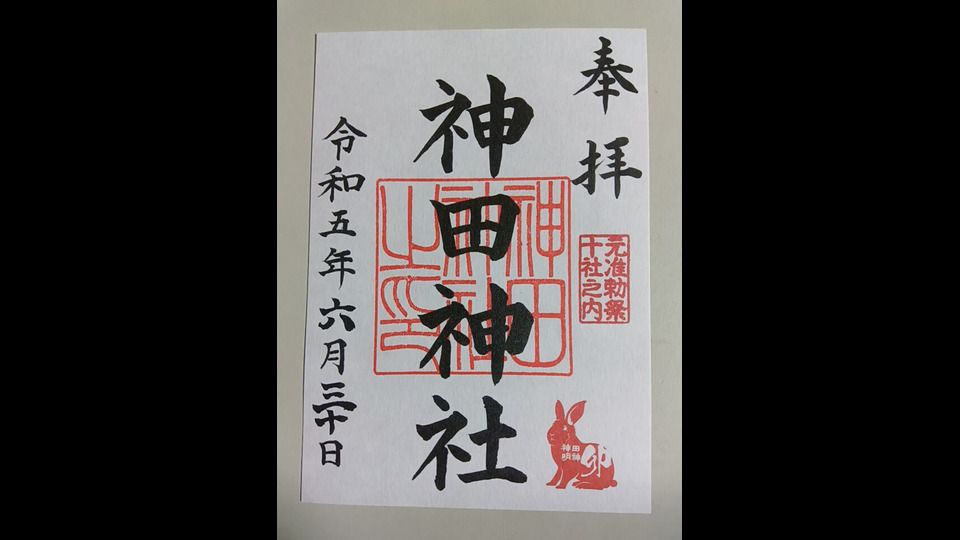 奉拝
元准勅祭
十社之内
神田神社
神田神社之印
卯
神田明神
令和五年六月三十日